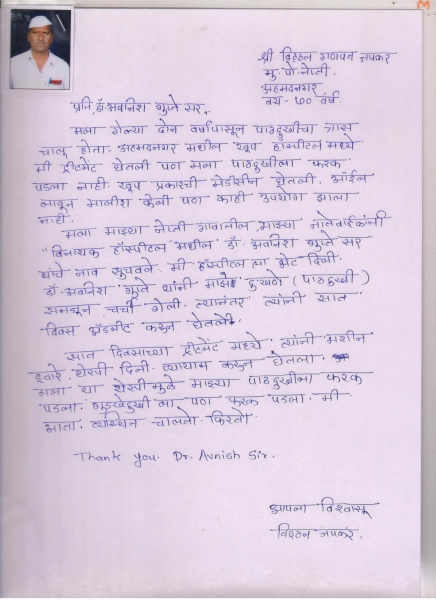 श्री विठ्ठल गणपत जपकर
मु. पो. नेप्ती.
अहमदनगर
वय - ७० वर्ष.
प्रति, डॉ. अवनिश गुप्ते सर,
मला गेल्या दोन वर्षापासून पाठदुखीचा त्रास
चालू होता. अहमदनगर मधील खूप हॉस्पीटल मध्ये
मी ट्रीटमेंट घेतली पण मला पाठदुखीला फरक
पडला नाही. खूप प्रकारची मेडीसीन घेतली. ऑईल
लावून मालीश केली पण काही उपयोग झाला
नाही.
मला माझ्या नेप्ती गावातील माझ्या नातेवाईकांनी
"विनायक हॉस्पीटल मधील डॉ. अवनिश गुप्ते सर
यांचे नाव सुचवले. मी हॉस्पीटल ला भेट दिली.
डॉ. अवनिश गुप्ते यांनी माझे दुःखणे (पाठदुखी)
समजून चर्चा केली. त्यानंतर त्यांनी सात
दिवस अॅडमीट करून घेतले.
सात दिवसाच्या ट्रीटमेंट मध्ये त्यांनी मशीन
द्वारे थेरपी दिली. व्यायाम करून घेतला.
मला या थेरपीमुळे माझ्या पाठदुखीला फरक
पडला. गुडघेदुखी ला पण फरक पडला. मी
आता व्यस्थित चालतो फिरतो.
Thank you. Dr. Avnish Sir.
आपला विश्वासू
विठ्ठल जपकर.